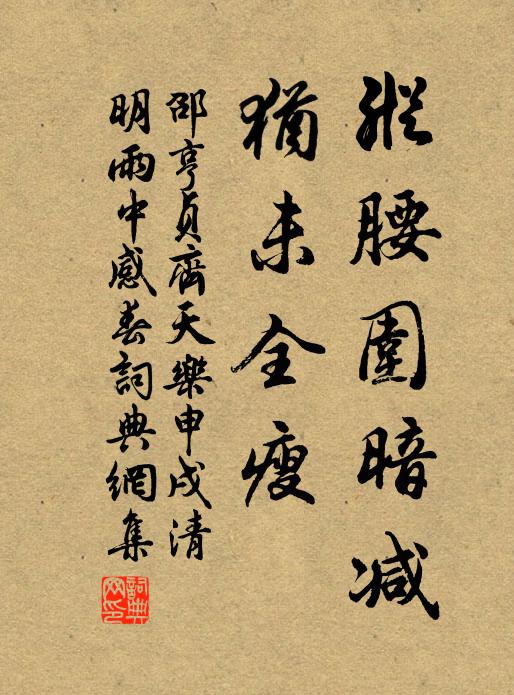 縱腰圍暗减
猶未全瘦
邵亨貞齊天樂申戌清
明雨中感春詞典網集
詞典網印